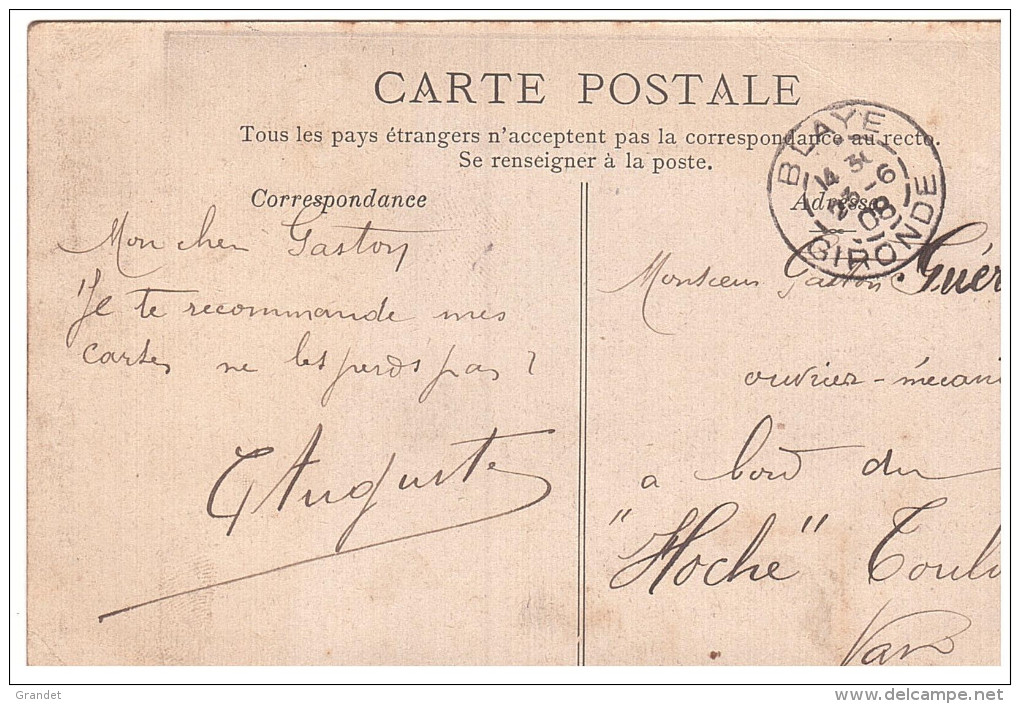 CARTE POSTALE
Tous les pays étrangers n'acceptent pas la correspondance au recto.
Se renseigner à la poste.
Correspondance
Adresse
BLAYE
14 30
6
08
GIRONDE
Mon cher Gaston
Je te recommande mes
cartes ne les perds pas
Auguste
Monsieur Gaston Guér
ouvrier-mécani
a bord du
"Hoche" Toulo
Var
Grandet
delcampe.net